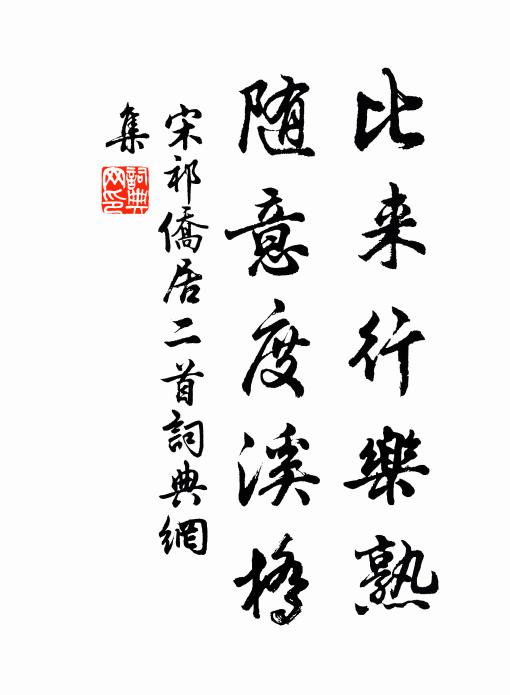 比来行樂熟
随意度溪橋
宋祁僑居二首詞典網
集
詞典网印